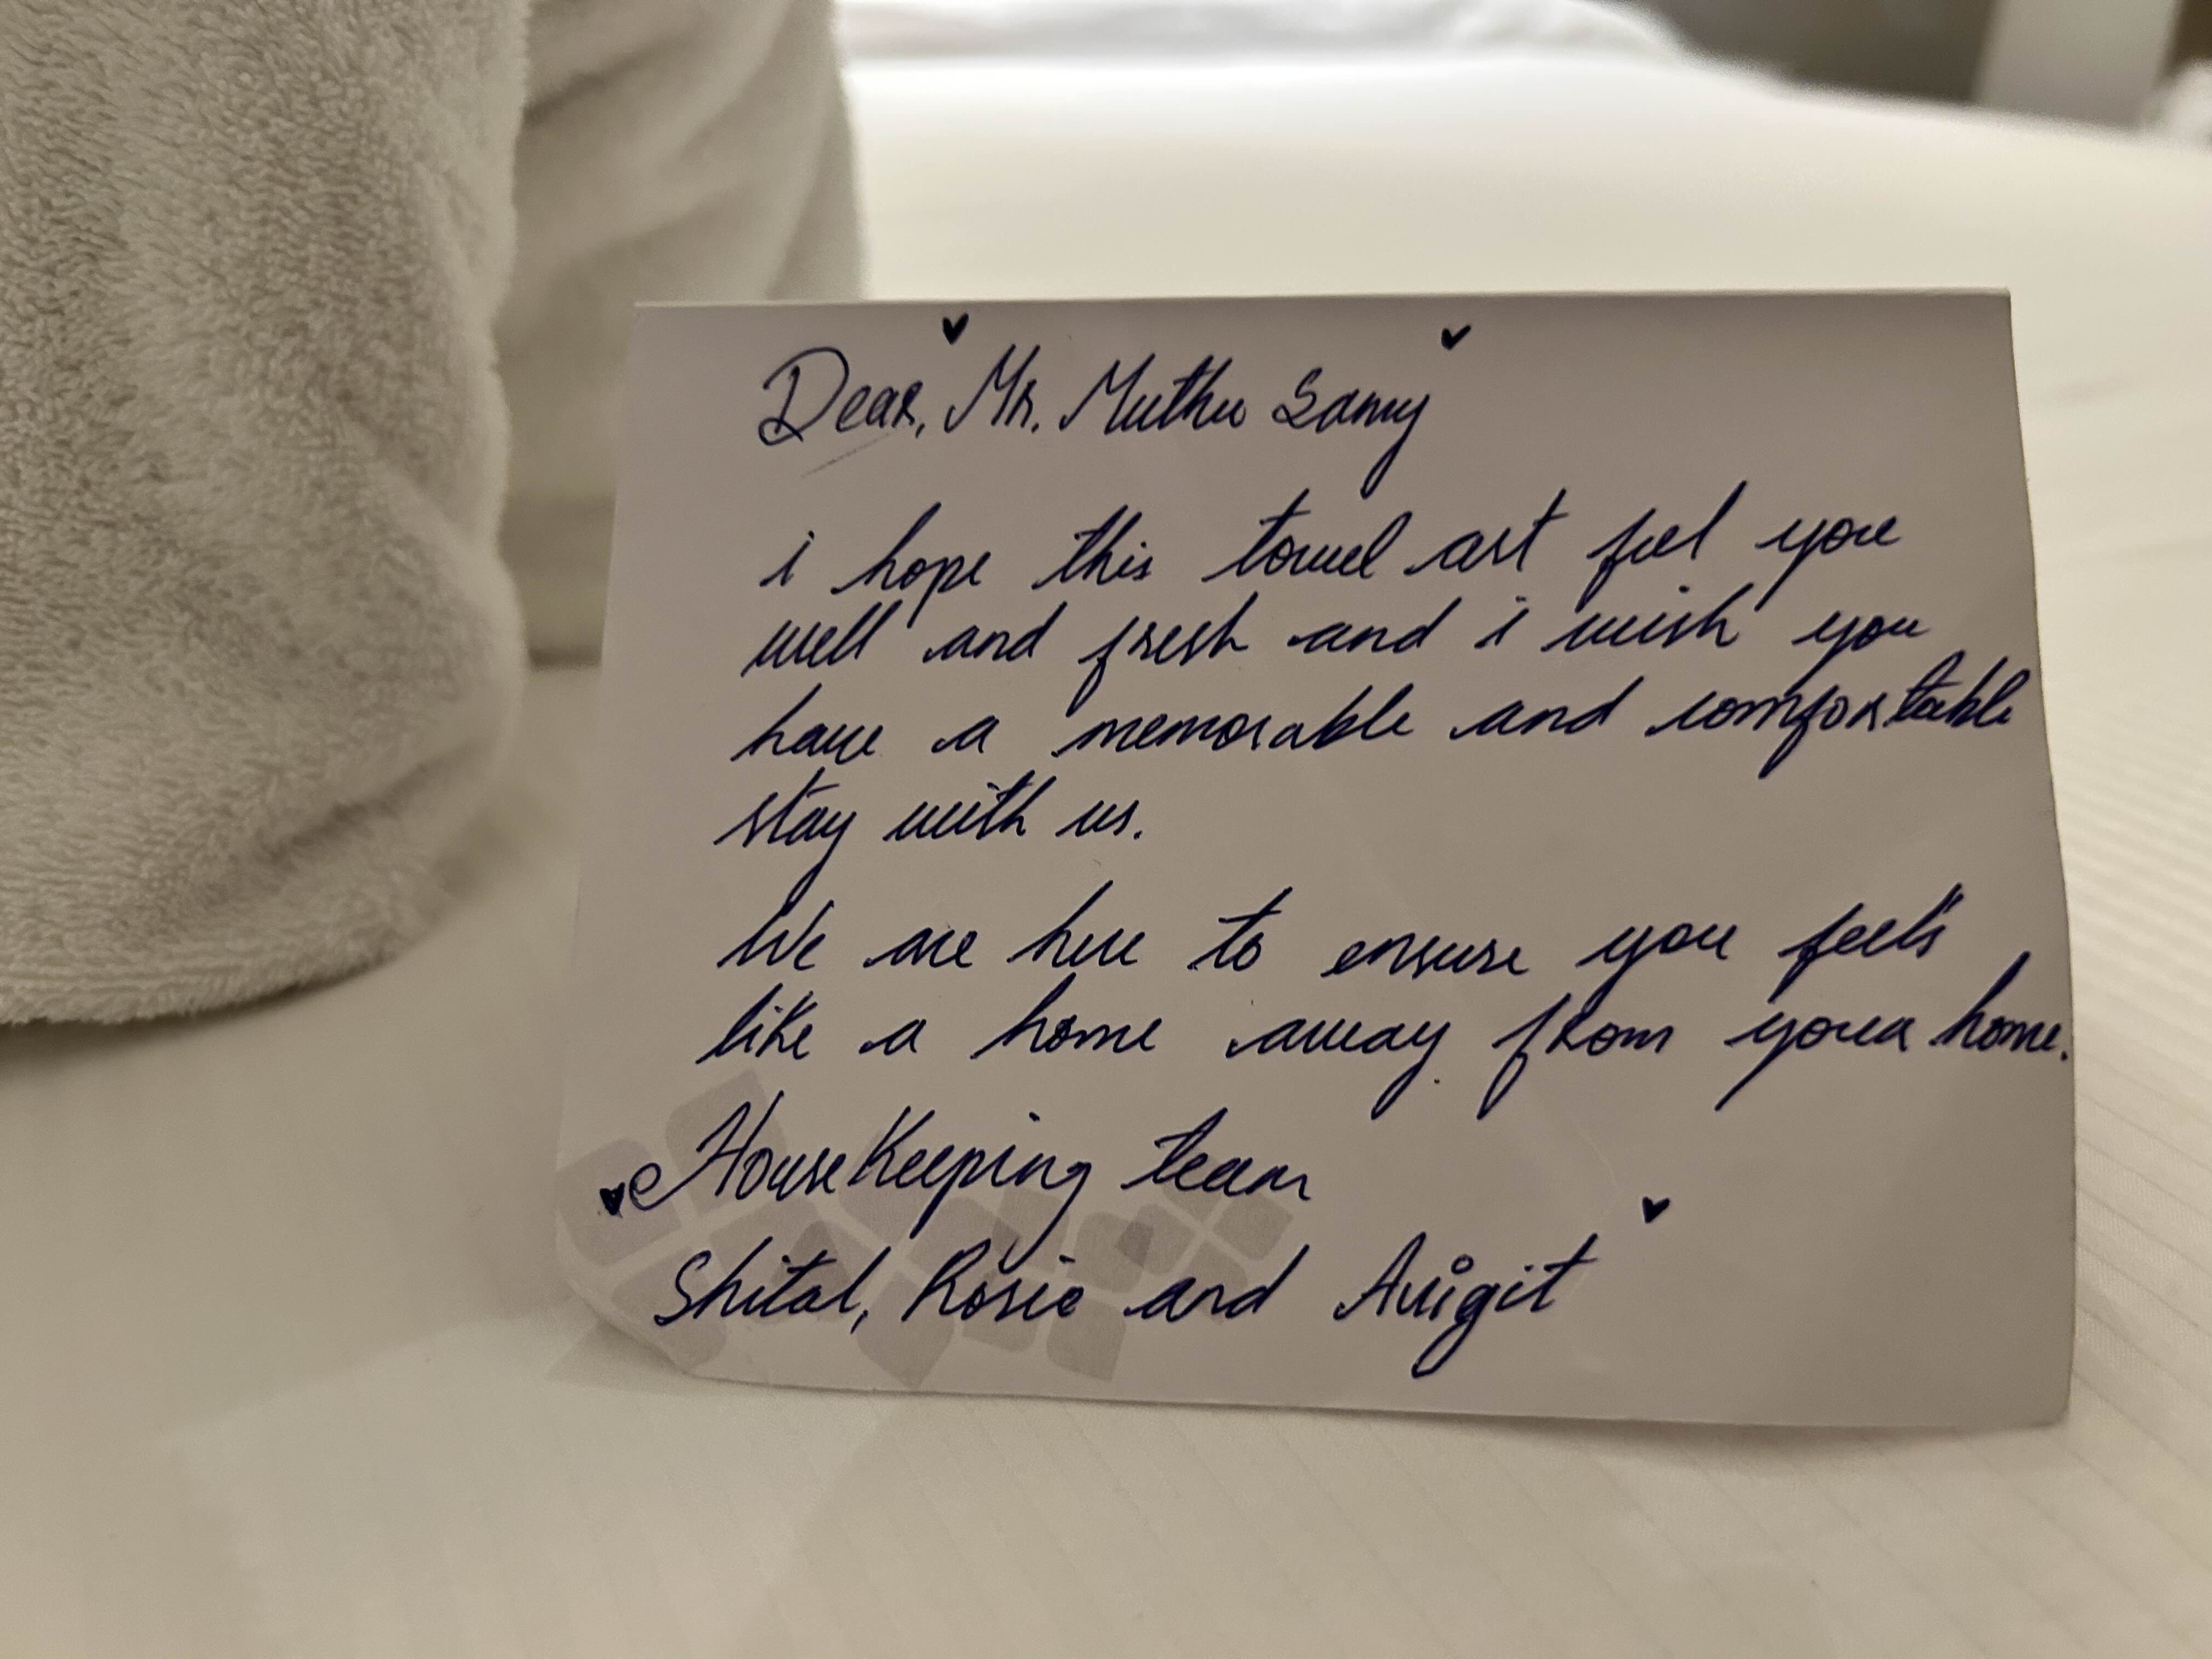 Dear, Mr. Muthu Samy
i hope this towel art feel you
well and fresh and i wish you
have a memorable and comfortable
stay with us.
We are here to ensure you feel's
like a home away from your home.
HouseKeeping team
Shital, Rosie and Avigit